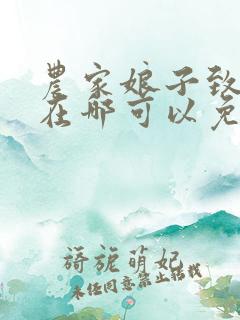 農家娘子致
在哪可以免
旖旎萌妃
未经同意禁止转载